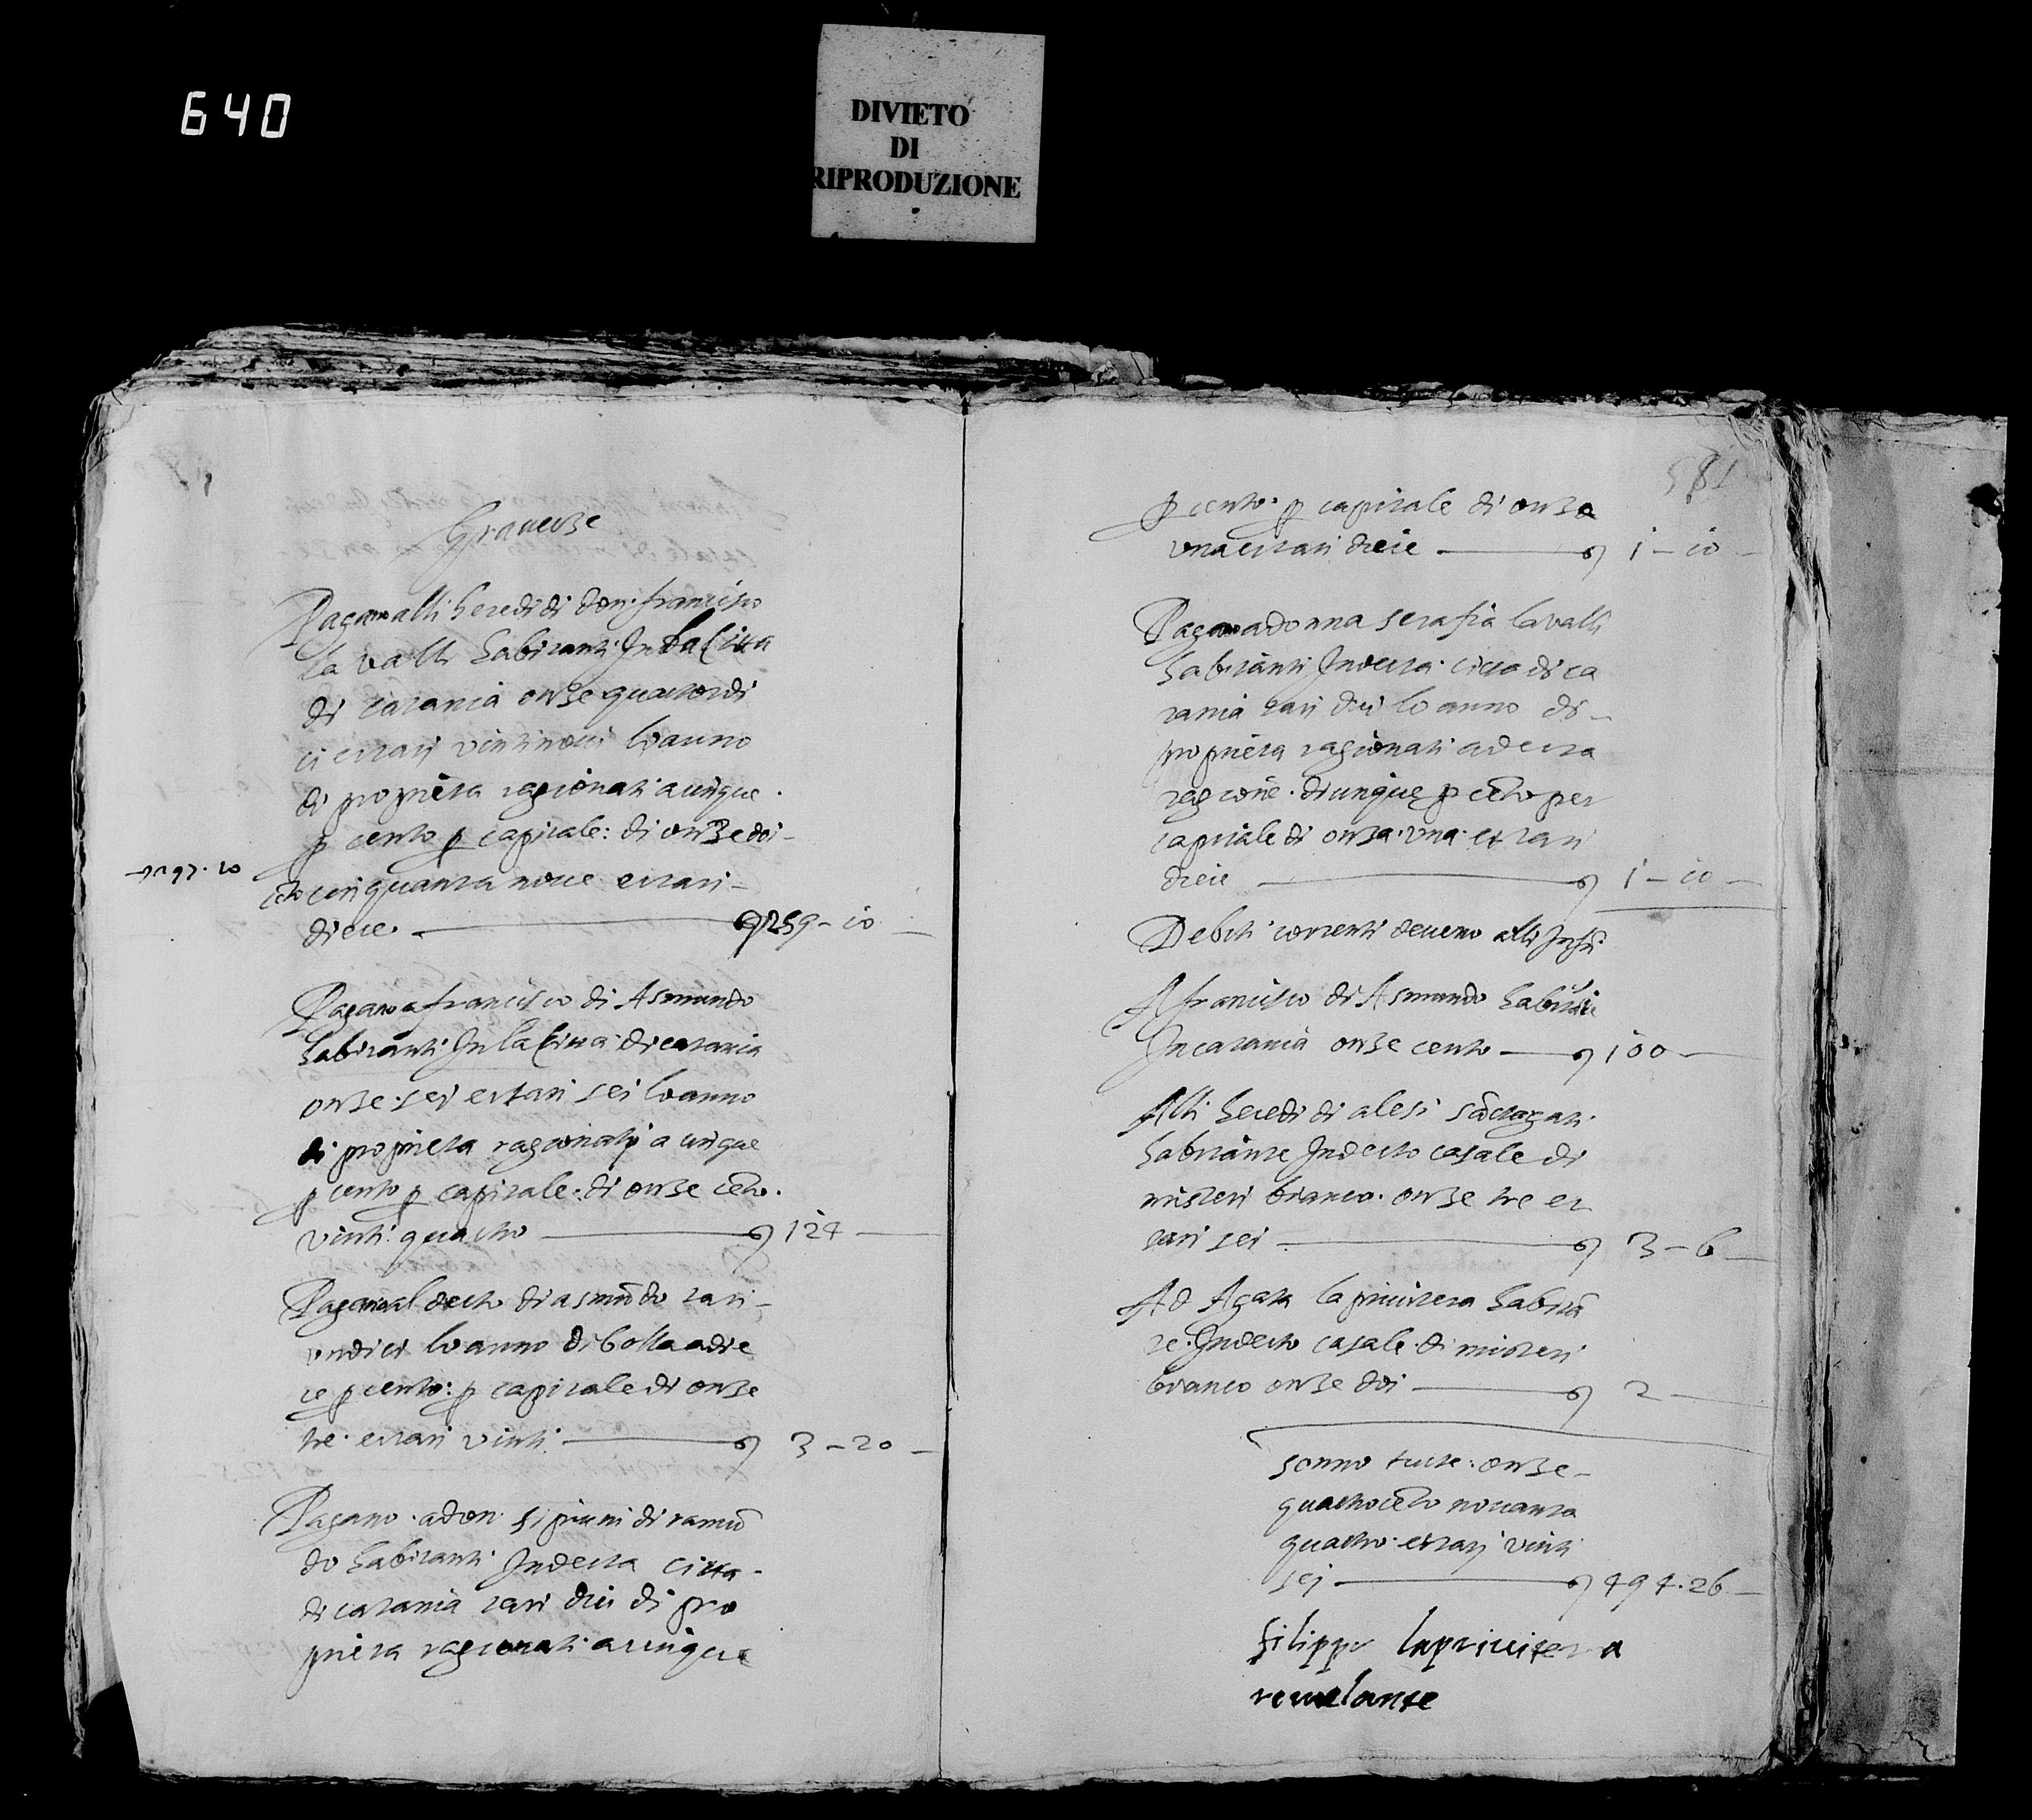 640
DIVIETO
DI
RIPRODUZIONE
Graveze
Pagano alli heredi di don francisco
la valli habitanti In la Citta
di catania onze quattordi
ci et tari vintinovi lo anno
di proprieta ragionati a cinque
p cento p capitale: di onze doi
cento cinquanta nove et tari
diece 259 - 10
Pagano a francisco di Asmundo
habitanti In la Citta di catania
onze sei et tari sei lo anno
di proprieta ragionati a cinque
p cento p capitale di onze cēto
vinti quattro 124
Pagano al detto di asmūdo tari
undici lo anno di bolla a die
ce p cento: p capitale di onze
tre et tari vinti 3 - 20
Pagano a don sipiuni di ramū
do habitanti In detta citta
di catania tari dui di pro
prieta ragionati a cinque
581
p cento p capitale di onza
una et tari diece 1 - 10
Pagano a donna serafia la valli
habitanti In detta citta di ca
tania tari dui lo anno di
proprieta ragionati a detta
ragione di cinque p cēto per
capitale di onza una et tari
diece 1 - 10
Debiti correnti deveno alli Infri
A francisco di Asmundo habitāte
In catania onze cento 100
Alli heredi di alesi sāctagati
habitante In detto casale di
misteri bianco onze tre et
tari sei 3 - 6
Ad Agata la privitera habitā
te In detto casale di misteri
bianco onze doi 2
sonno tutte: onze
quattrocēto novanta
quattro et tari vinti
sei 494.26
filippo laprivitera
revelante